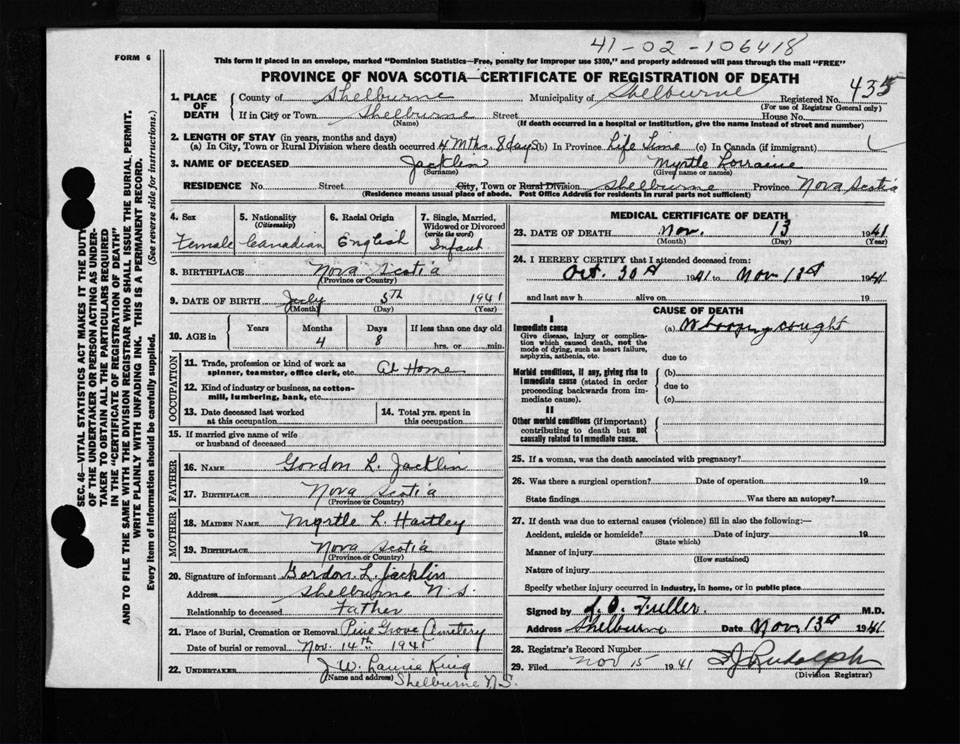 41-02-106418
FORM 6
This form if placed in an envelope, marked "Dominion Statistics—Free, penalty for improper use $300," and properly addressed will pass through the mail "FREE"
PROVINCE OF NOVA SCOTIA—CERTIFICATE OF REGISTRATION OF DEATH
SEC. 46—VITAL STATISTICS ACT MAKES IT THE DUTY
OF THE UNDERTAKER OR PERSON ACTING AS UNDER-
TAKER TO OBTAIN ALL THE PARTICULARS REQUIRED
IN THE "CERTIFICATE OF REGISTRATION OF DEATH"
AND TO FILE THE SAME WITH THE DIVISION REGISTRAR WHO SHALL ISSUE THE BURIAL PERMIT.
WRITE PLAINLY WITH UNFADING INK. THIS IS A PERMANENT RECORD.
Every item of information should be carefully supplied. (See reverse side for instructions.)
1. PLACE OF DEATH County of Shelburne Municipality of Shelburne Registered No. 435
(For use of Registrar General only)
If in City or Town Shelburne Street House No.
(Name) (If death occurred in a hospital or institution, give the name instead of street and number)
2. LENGTH OF STAY (in years, months and days)
(a) In City, Town or Rural Division where death occurred 4 Mths. 8 days (b) In Province Life Time (c) In Canada (if immigrant)
3. NAME OF DECEASED Jacklin Myrtle Lorraine
(Surname) (Given name or names)
RESIDENCE No. Street City, Town or Rural Division Shelburne Province Nova Scotia
(Residence means usual place of abode. Post Office Address for residents in rural parts not sufficient)
4. Sex Female
5. Nationality (Citizenship) Canadian
6. Racial Origin English
7. Single, Married, Widowed or Divorced (write the word) Infant
8. BIRTHPLACE Nova Scotia
(Province or Country)
9. DATE OF BIRTH July 5th 1941
(Month) (Day) (Year)
10. AGE in Years Months 4 Days 8 If less than one day old hrs. or min.
OCCUPATION
11. Trade, profession or kind of work as spinner, teamster, office clerk, etc. At Home
12. Kind of industry or business, as cotton-mill, lumbering, bank, etc.
13. Date deceased last worked at this occupation
14. Total yrs. spent in this occupation
15. If married give name of wife or husband of deceased
FATHER
16. NAME Gordon L. Jacklin
17. BIRTHPLACE Nova Scotia
(Province or Country)
MOTHER
18. MAIDEN NAME Myrtle L. Hartley
19. BIRTHPLACE Nova Scotia
(Province or Country)
20. Signature of informant Gordon L. Jacklin
Address Shelburne N.S.
Relationship to deceased Father
21. Place of Burial, Cremation or Removal Pine Grove Cemetery
Date of burial or removal Nov. 14th 1941
22. UNDERTAKER J W. Laurie King
(Name and address) Shelburne N.S.
MEDICAL CERTIFICATE OF DEATH
23. DATE OF DEATH Nov. 13 1941
(Month) (Day) (Year)
24. I HEREBY CERTIFY that I attended deceased from:
Oct. 30 1941 to Nov 13 1941
and last saw h alive on 19
CAUSE OF DEATH
I
Immediate cause (a) Whooping cought
Give disease, injury or complication which caused death, not the mode of dying, such as heart failure, asphyxia, asthenia, etc.
due to
Morbid conditions, if any, giving rise to immediate cause (stated in order proceeding backwards from immediate cause). (b)
due to
(c)
II
Other morbid conditions (if important) contributing to death but not causally related to immediate cause.
25. If a woman, was the death associated with pregnancy?
26. Was there a surgical operation? Date of operation 19
State findings Was there an autopsy?
27. If death was due to external causes (violence) fill in also the following:—
Accident, suicide or homicide? Date of injury 19
(State which)
Manner of injury
(How sustained)
Nature of injury
Specify whether injury occurred in industry, in home, or in public place
Signed by L. O. Fuller. M.D.
Address Shelburne Date Nov 13 1941
28. Registrar's Record Number
29. Filed Nov 15 1941 Rudolph
(Division Registrar)